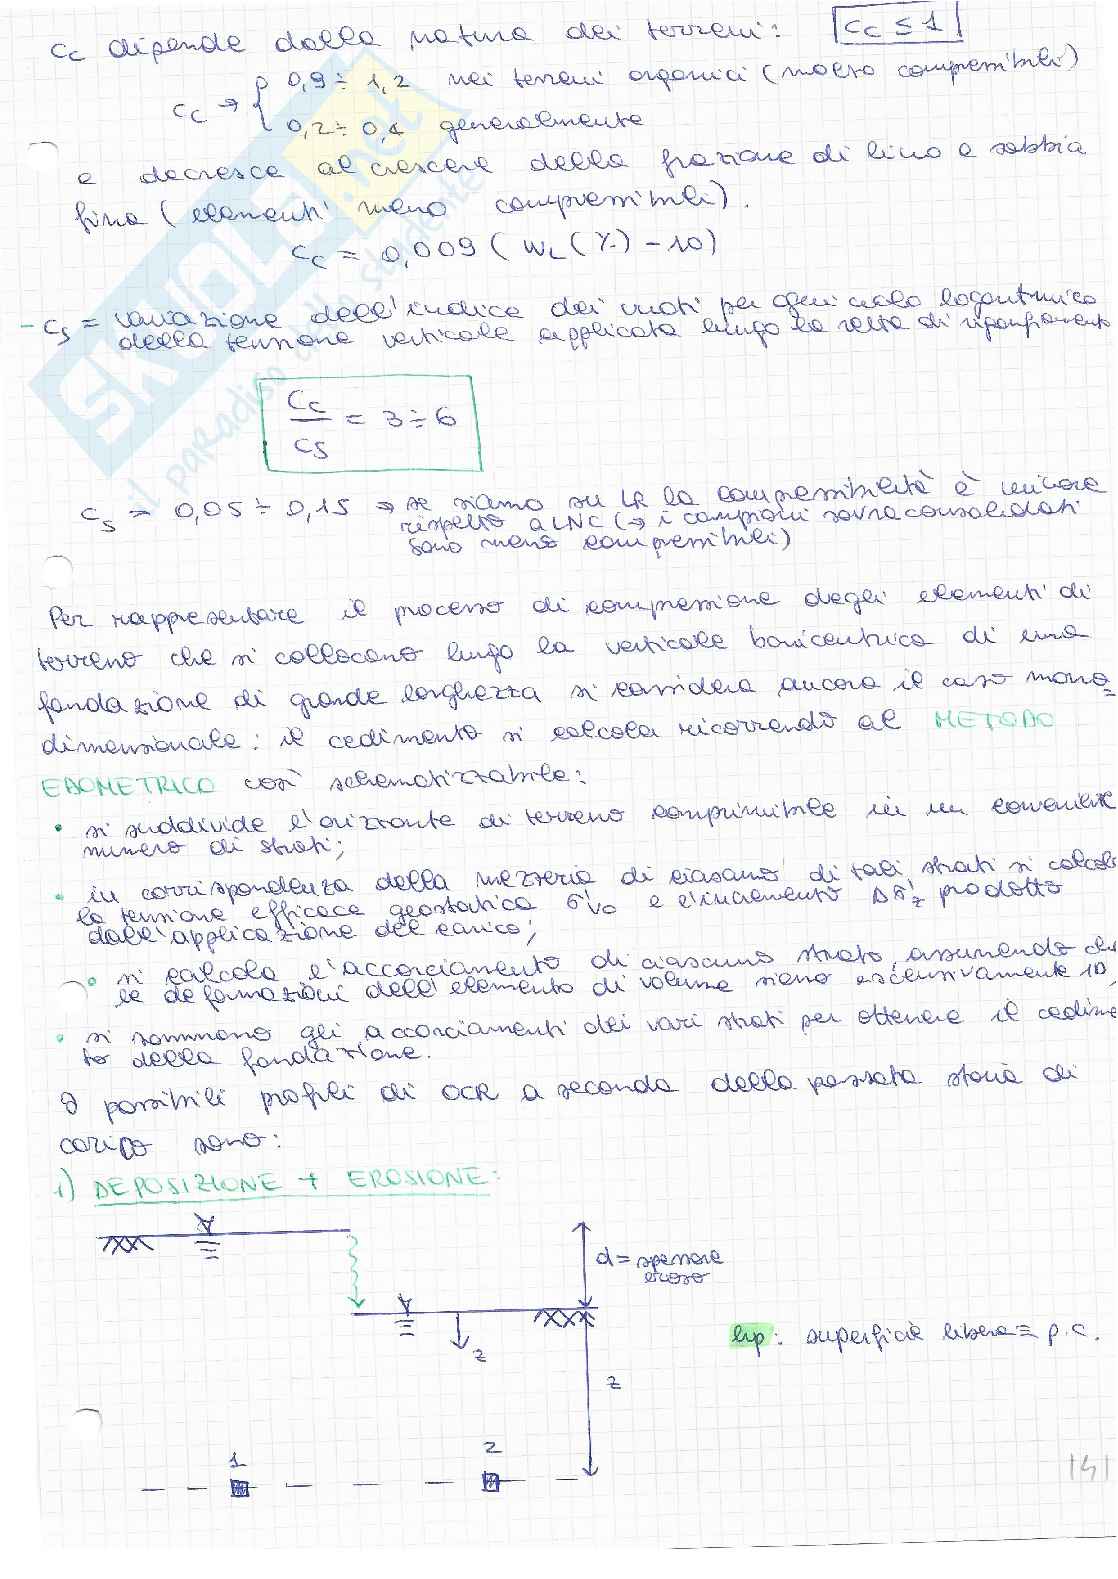 Cc dipende dalla natura dei terreni: Cc ≤ 1
Cc → { 0,9 ÷ 1,2 nei terreni organici (molto compressibili)
0,2 ÷ 0,4 generalmente
e decresce al crescere della frazione di limo e sabbia
fina (elementi meno compressibili).
Cc = 0,009 (WL (%) - 10)
- Cs = variazione dell'indice dei vuoti per ogni ciclo logaritmico
della tensione verticale applicata lungo la retta di rigonfiamento
Cc/Cs = 3 ÷ 6
Cs = 0,05 ÷ 0,15 → se siamo su LR la compressibilità è minore
rispetto a LNC (→ i campioni sovraconsolidati
sono meno compressibili)
Per rappresentare il processo di compressione degli elementi di
terreno che si collocano lungo la verticale baricentrica di una
fondazione di grande larghezza si considera ancora il caso mono=
dimensionale: il cedimento si calcola ricorrendo al METODO
EDOMETRICO così schematizzabile:
• si suddivide l'orizzonte di terreno comprimibile in un conveniente
numero di strati;
• in corrispondenza della mezzeria di ciascuno di tali strati si calcola
la tensione efficace geostatica σ'v0 e l'incremento Δσ'z prodotto
dall'applicazione del carico;
• si calcola l'accorciamento di ciascuno strato, assumendo che
le deformazioni dell'elemento di volume siano esclusivamente 1D,
• si sommano gli accorciamenti dei vari strati per ottenere il cedimen
to della fondazione.
I possibili profili di OCR a seconda della passata storia di
carico sono:
1) DEPOSIZIONE + EROSIONE:
d = spessore
eroso
z
hp: superficie libera ≡ p.c.
z
1 2
141
SKUOLA.net
il paradiso dello studente